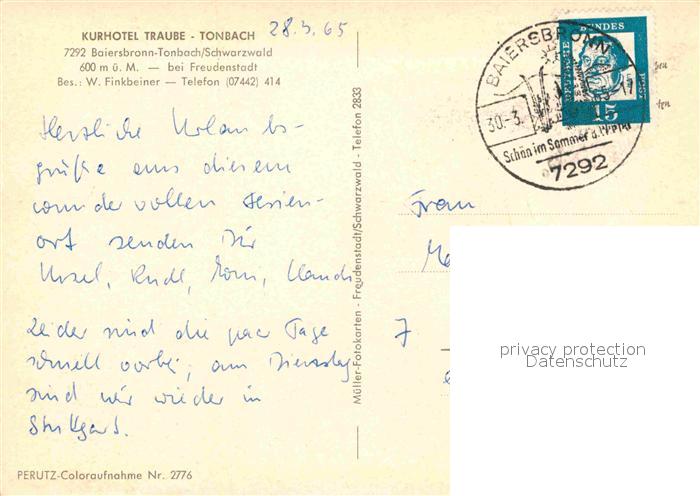 28.3.65
KURHOTEL TRAUBE - TONBACH
7292 Baiersbronn-Tonbach/Schwarzwald
600 m ü. M. — bei Freudenstadt
Bes.: W. Finkbeiner — Telefon (07442) 414
Herzliche Urlaubs-
grüße aus diesem
wundervollen Ferien-
ort senden Dir
Ursel, Rudi,
Leider sind die paar Tage
schnell vorbei, am Dienstag
sind wir wieder in
Stuttgart.
PERUTZ-Coloraufnahme Nr. 2776
Müller-Fotokarten - Freudenstadt/Schwarzwald - Telefon 2833
BAIERSBRONN
30.-3.
Schön im Sommer u. Winter
7292
DEUTSCHE BUNDESPOST
15
Frau
7
privacy protection
Datenschutz